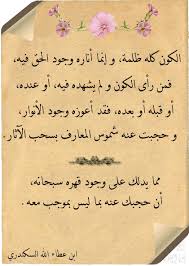 الكون كله ظلمة، و إنما أناره وجود الحق فيه،
فمن رأى الكون و لم يشهده فيه، أو عنده،
أو قبله أو بعده، فقد أعوزه وجود الأنوار،
و حجبت عنه شموس المعارف بسحب الآثار.
مما يدلك على وجود قهره سبحانه،
أن حجبك عنه بما ليس بموجب معه.
ابن عطاء الله السكندري